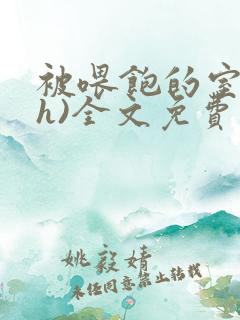 被喂饱的宝
h)全文免费
姚毅婧
未经同意禁止转载